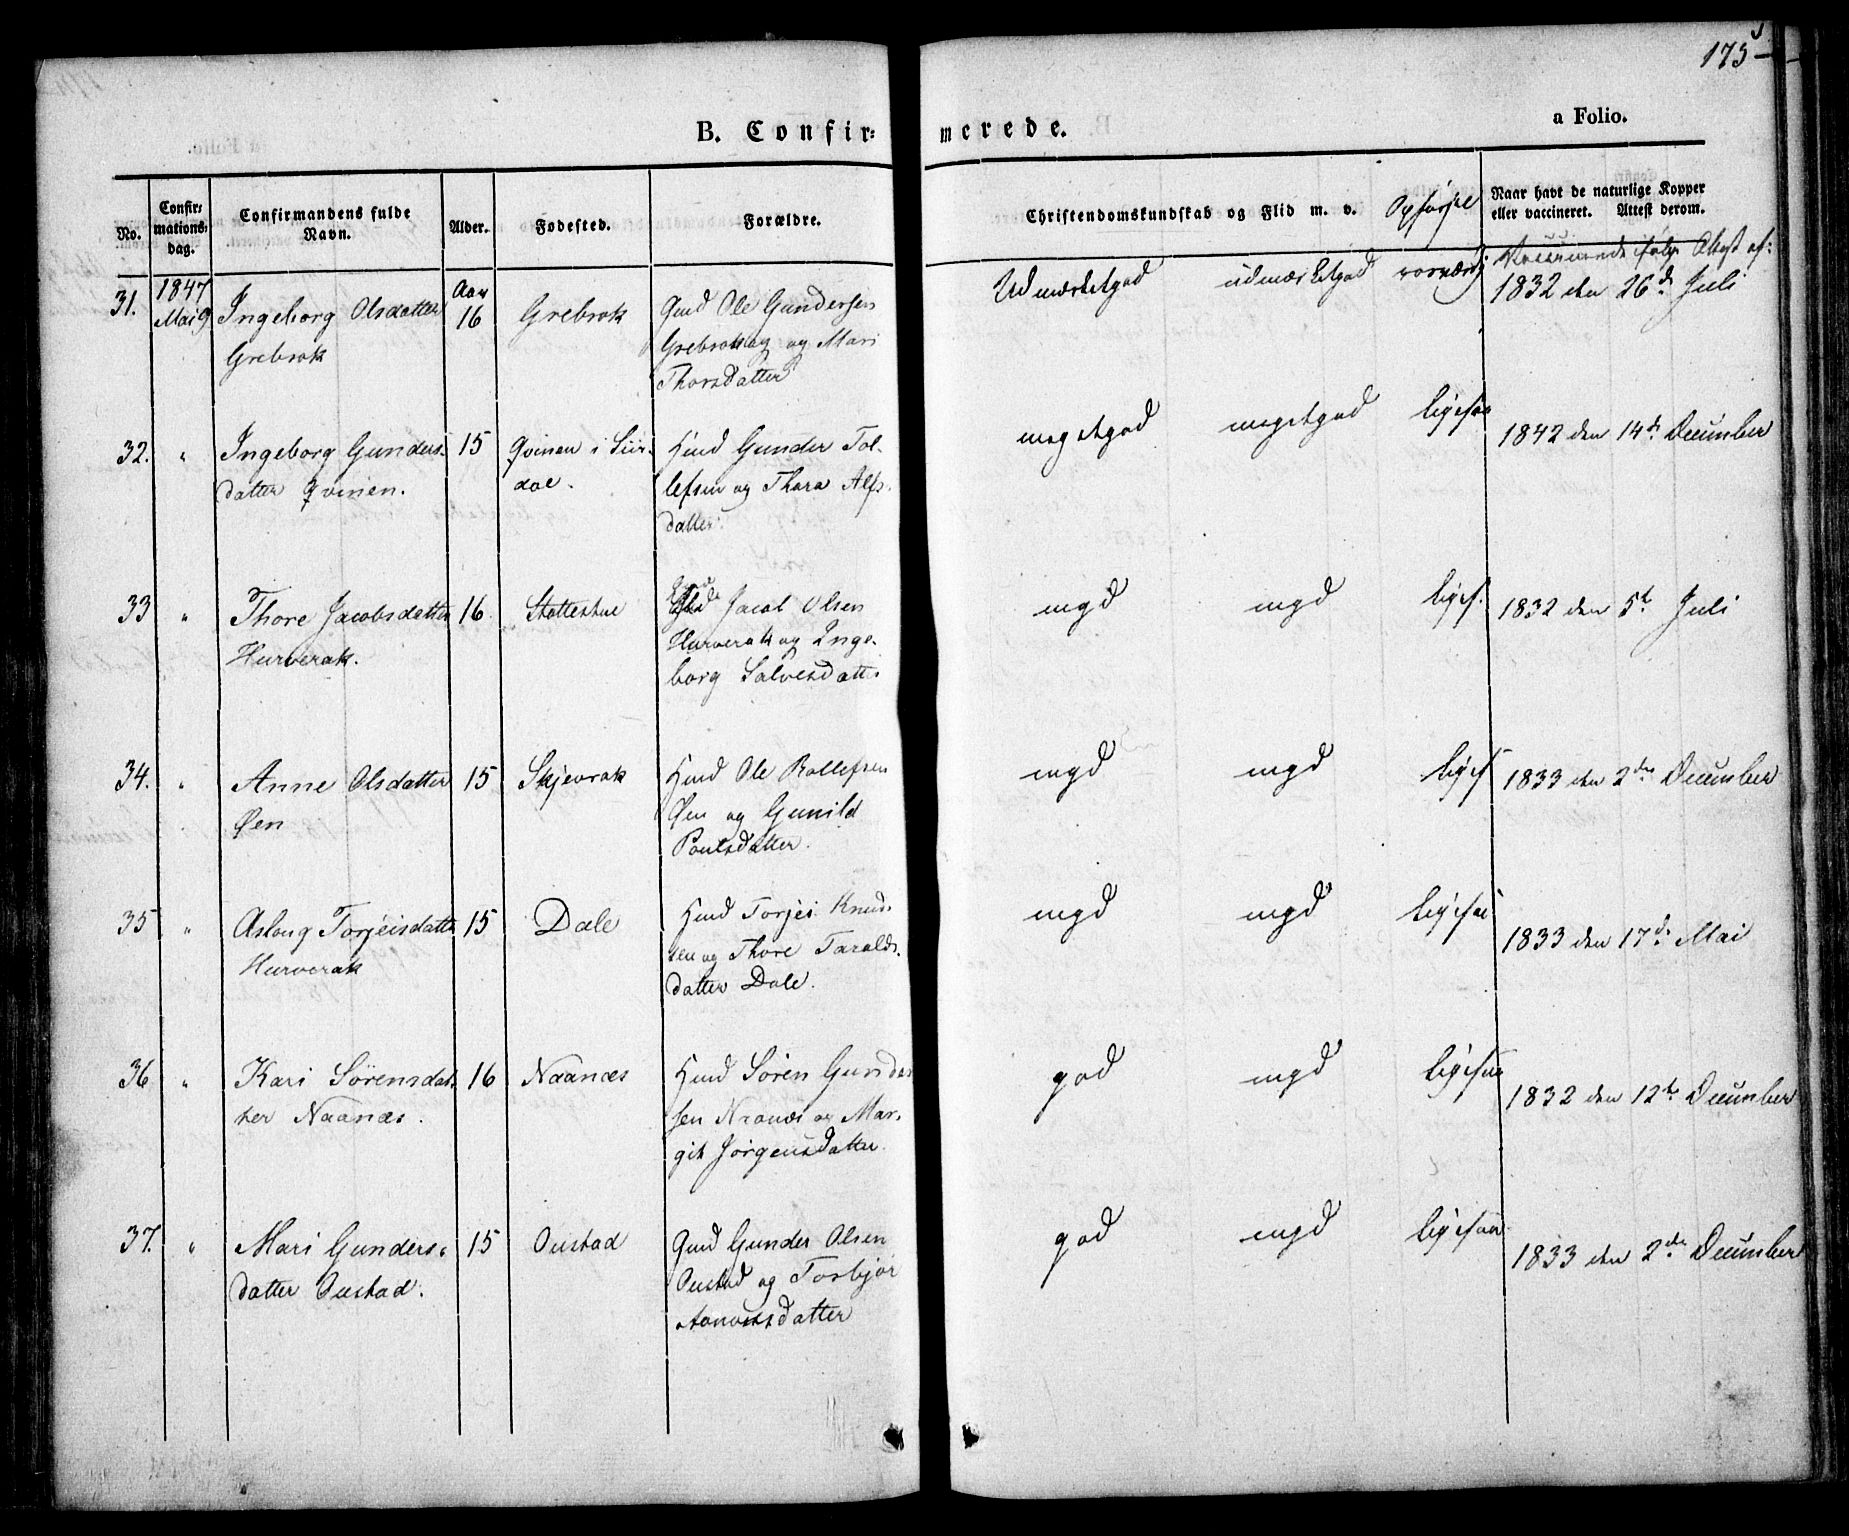 175
B. Confir= merede.
a Folio.
No.
Confir=
mations=
dag.
Confirmandens fulde
Navn.
Alder.
Fødested.
Forældre.
Christendomskundskab og Flid m. v.
Opførsel
Naar havt de naturlige Kopper
eller vaccineret. Attest derom.
31.
1847
Mai 9
Ingeborg Olsdatter
Grebrok
Aar
16
Grebrok
Gmd Ole Gundersen
Grebrok og Mari
Thorsdatter
Udmærketgod
udmærketgod
Attest af:
1832 den 26d. Juli
32.
"
Ingeborg Gunders=
datter Qvinen.
15
Qvinen i Siir=
dal.
Hmd Gunder Tol=
lefsen og Thora Alfs=
datter.
megetgod
megetgod
ligesaa
1842 den 14de December
33
"
Thore Jacobsdatter
Hurverak.
16
Støttestue
Jacob Olsen
Hurverak og Inge=
borg Salvesdatter
mgd
mgd
liges.
1832 den 5t. Juli
34.
"
Anne Olsdatter
Øen
15
Skjevrak
Hmd Ole Rollefsen
Øen og Gunild
Poulsdatter.
mgd
mgd
liges
1833 den 2den December
35
"
Aslaug Torjeisdatter
Hurverak
15
Dale
Hmd Torjei Knud=
sen og Thore Taralds=
datter Dale.
mgd
mgd
ligesaa
1833 den 17d. Mai
36
"
Kari Sörensdat=
ter Naanæs.
16
Naanæs
Hmd Sören Gunder
sen Naanæs og Mar=
git Jörgensdatter.
god
mgd
ligesaa
1832 den 12te December
37.
"
Mari Gunders=
datter Oustad.
15
Oustad
Gmd Gunder Olsen
Oustad og Torbjør
Aanensdatter
god
mgd
ligesaa
1833 den 2den December